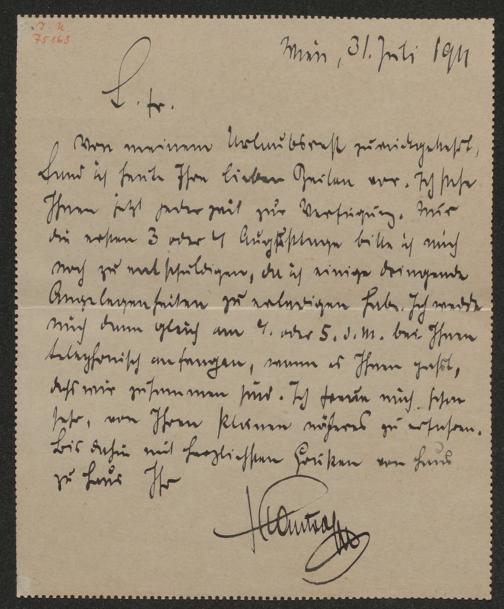 I. N.
75163
Wien, 31. Juli 1911
L. Fr.
Von meinem Urlaubsrest zurückgekehrt,
fand ich heute Ihre lieben Zeilen vor. Ich stehe
Ihnen jetzt jederzeit zur Verfügung. Nur
die ersten 3 oder 4 Augusttage bitte ich mich
noch zu entschuldigen, da ich einige dringende
Angelegenheiten zu erledigen habe. Ich werde
mich dann gleich am 4. oder 5. d. M. bei Ihnen
telephonisch anfragen, wann es Ihnen paßt,
daß wir zusammen sind. Ich freue mich schon
sehr, von Ihren Plänen näheres zu erfahren.
Bis dahin mit herzlichsten Grüßen von Haus
zu Haus Ihr